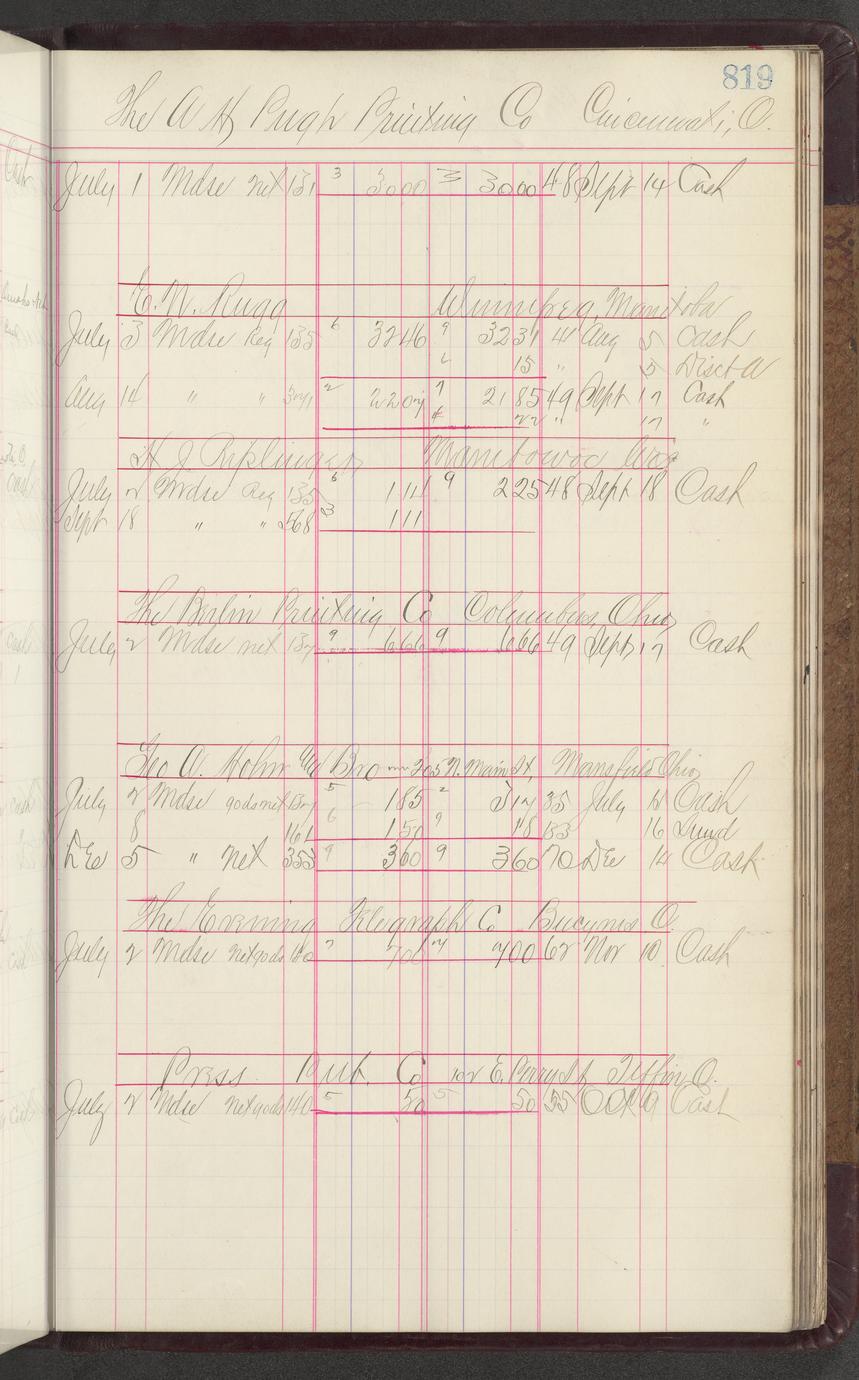 819
The A H Pugh Printing Co Cincinnati, O.
July 1 Mdse net 131 3 3000 3 3000 48 Sept 14 Cash
E. N. Rugg Winnipeg, Manitoba
July 3 Mdse Reg 135 6 3246 9 3231 41 Aug 5 Cash
6 15 " 5 Disct a
Aug 14 " " 2 2207 7 2185 49 Sept 17 Cash
22 " 17 "
H J Riplinger Manitowoc Wis
July 2 Mdse Reg 135 6 114 9 225 48 Sept 18 Cash
Sept 18 " " 568 3 111
The Berlin Printing Co Columbus, Ohio
July 2 Mdse net 137 9 666 9 666 49 Sept 17 Cash
Geo A. Hohn Bro 205 N. Main St, Mansfield Ohio
July 2 Mdse gods net 137 5 185 2 317 35 July Cash
8 161 6 150 9 18 133 16 Sund
Dec 5 " net 353 9 360 9 360 70 Dec 14 Cash
The Evening Telegraph Co Bucyrus O.
July 2 Mdse net gods 7 700 7 700 62 Nov 10 Cash
Press Pub. Co 102 E. Perry St Tiffin O.
July 2 Mdse net gods 140 5 50 5 50 55 Oct 9 Cash